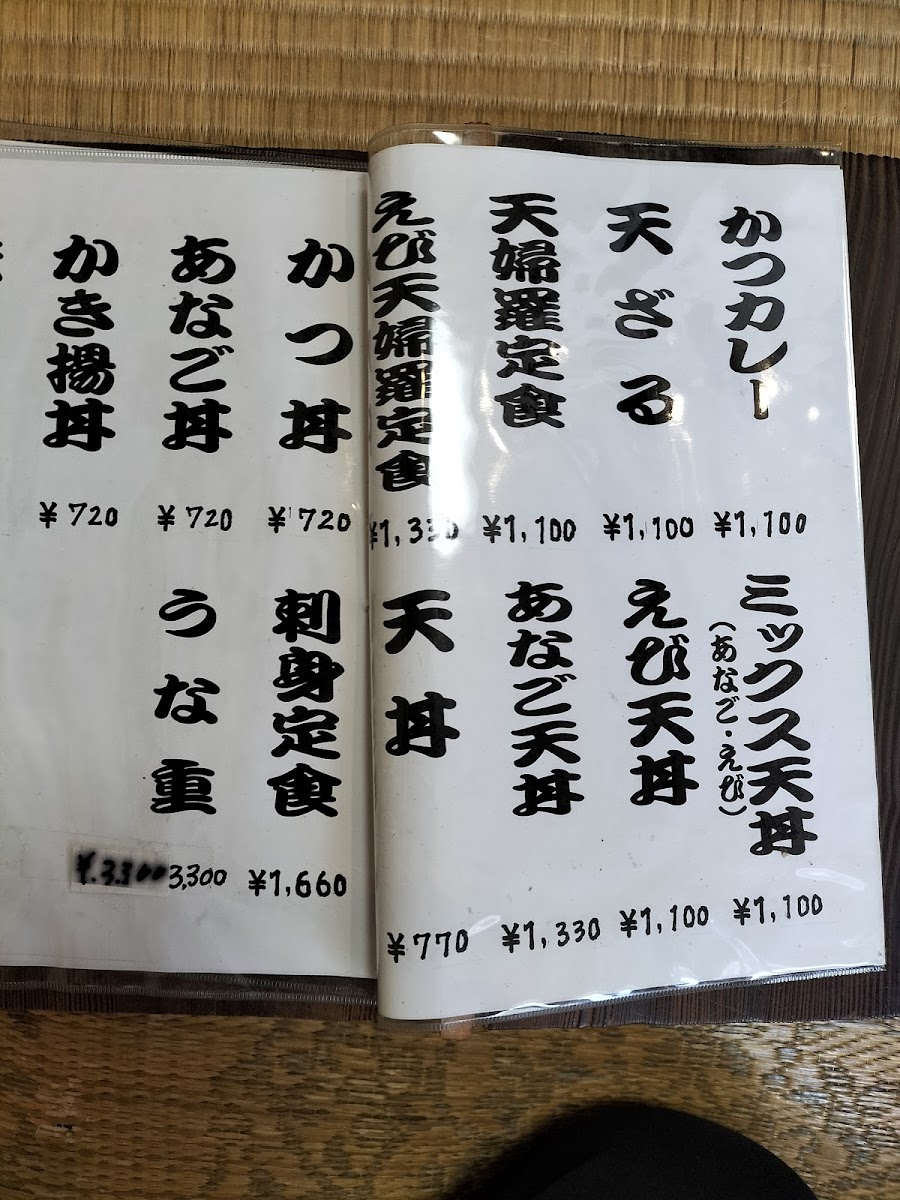 かつカレー
¥1,100
天ざる
¥1,100
天婦羅定食
¥1,100
えび天婦羅定食
¥1,330
ミックス天丼
(あなご・えび)
¥1,100
えび天丼
¥1,100
あなご天丼
¥1,330
天丼
¥770
かつ丼
¥720
あなご丼
¥720
かき揚丼
¥720
刺身定食
¥1,660
うな重
¥3,300
3,300